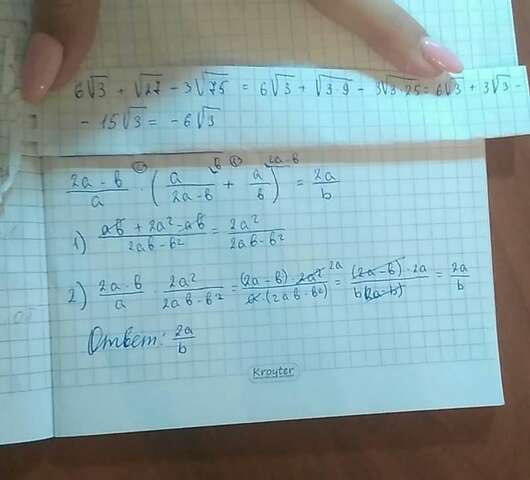 6√3 + √27 - 3√75 = 6√3 + √3·9 - 3√3·25 = 6√3 + 3√3 -
- 15√3 = -6√3
(2a - b)/a · (a/(2a-b) + a/b) = 2a/b
1) (ab + 2a² - ab)/(2ab - b²) = 2a²/(2ab - b²)
2) (2a - b)/a · 2a²/(2ab - b²) = (2a - b) · 2a²/(a · (2ab - b²)) = (2a - b) · 2a/(b(2a - b)) = 2a/b
Ответ: 2a/b
Kroyter